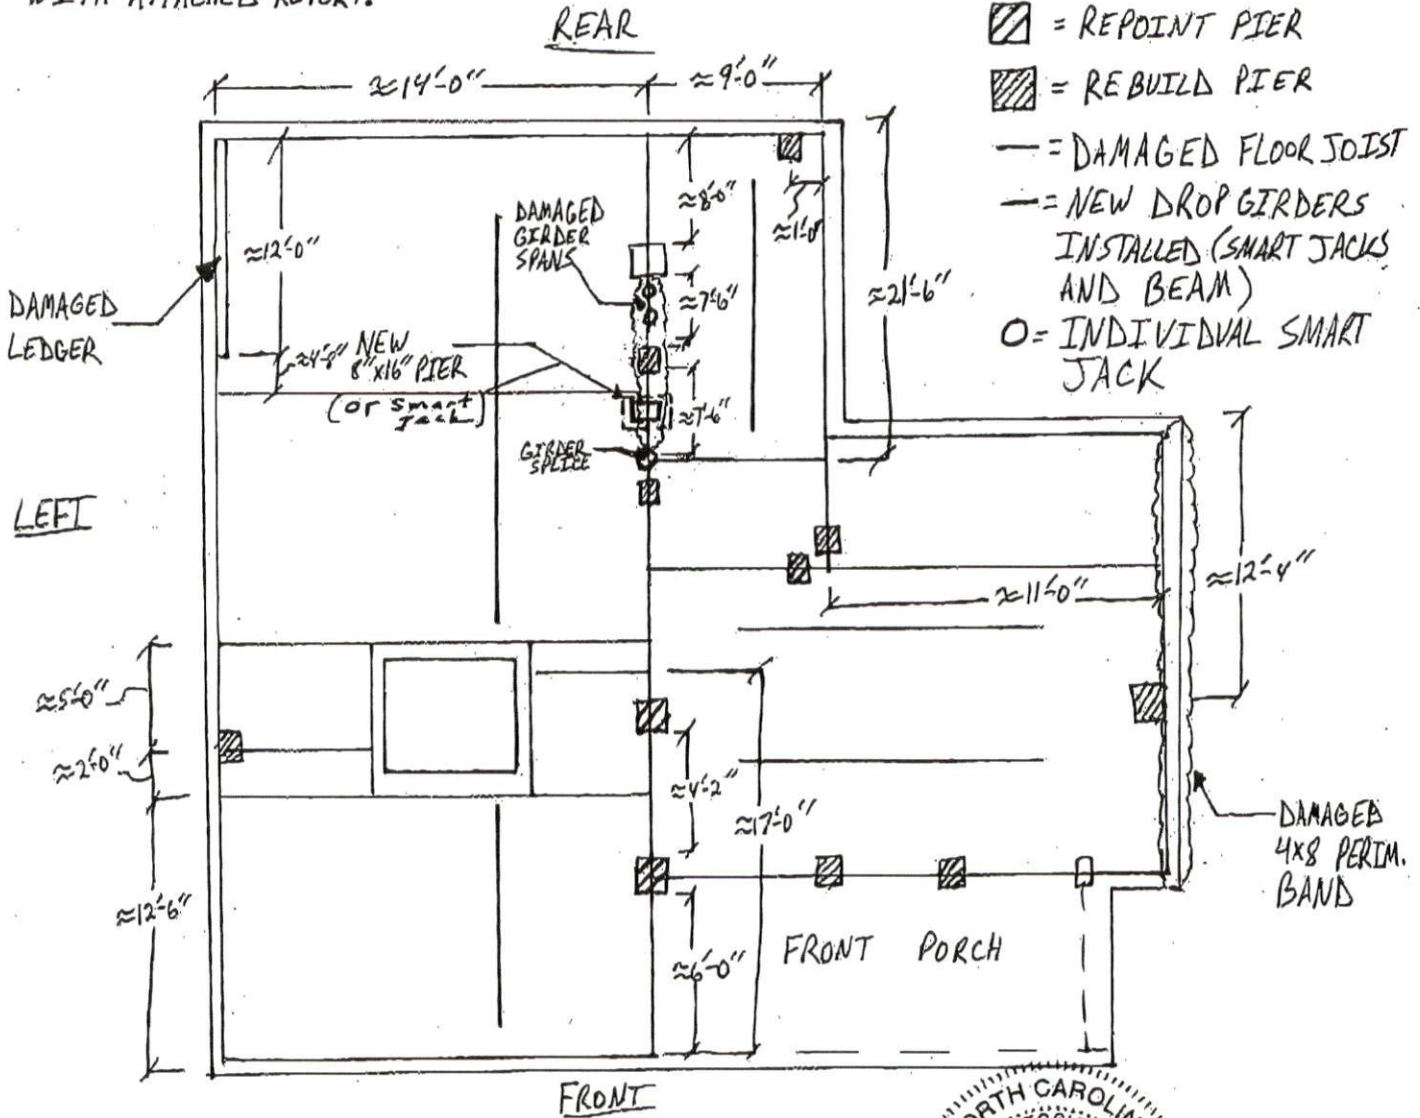 WITH ATTACHED REPORT.
REAR
= REPOINT PIER
= REBUILD PIER
= DAMAGED FLOOR JOIST
= NEW DROP GIRDERS
INSTALLED (SMART JACKS
AND BEAM)
O = INDIVIDUAL SMART
JACK
≈14'-0"
≈9'-0"
≈8'-0"
≈1'-0"
≈12'-0"
DAMAGED
GIRDER
SPANS
≈7'-6"
≈21'-6"
DAMAGED
LEDGER
≈4'-8"
NEW
8"x16" PIER
(or smart
Jack)
≈7'-6"
GIRDER
SPLICE
LEFT
≈12'-4"
≈11'-0"
≈5'-0"
≈2'-0"
≈4'-2"
≈17'-0"
DAMAGED
4x8 PERIM.
BAND
≈12'-6"
≈6'-0"
FRONT PORCH
FRONT
NORTH CAROLINA